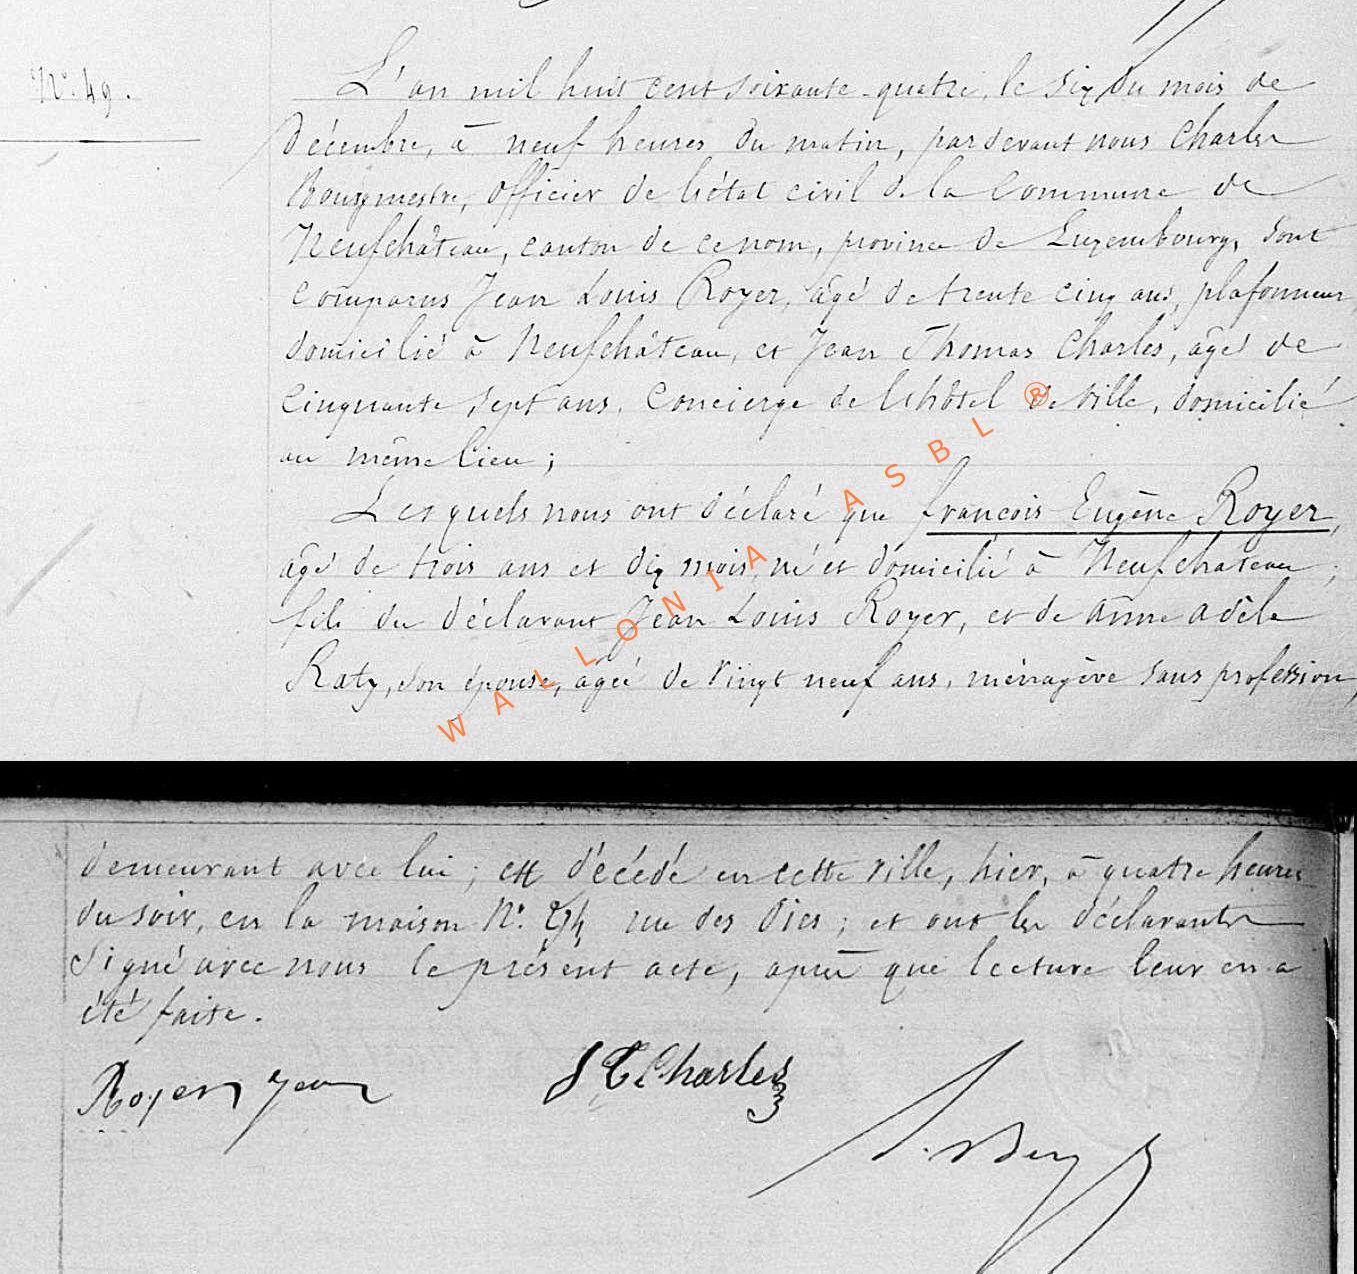 N.° 49.
L'an mil huit cent soixante-quatre, le six du mois de
Décembre, à neuf heures du matin, pardevant nous Charles
Bourgmestre, officier de l'état civil de la Commune de
Neufchâteau, canton de ce nom, province de Luxembourg, sont
comparus Jean Louis Royer, âgé de trente cinq ans, plafonneur,
domicilié à Neufchâteau, et Jean Thomas Charles, âgé de
Cinquante sept ans, Concierge de l'hôtel de ville, domicilié
au même lieu ;
Lesquels nous ont déclaré que françois Eugène Royer,
âgé de trois ans et dix mois, né et domicilié à Neufchateau ;
fils du déclarant Jean Louis Royer, et de anne adèle
Raty, son épouse, agée de vingt neuf ans, ménagère sans profession,
WALLONIA ASBL ®
demeurant avec lui ; est décédé en cette ville, hier, à quatre heures
du soir, en la maison N.° rue des Oies ; et ont les déclarants
Signé avec nous le présent acte, après que lecture leur en a
été faite.
Royer Jean
J T Charles